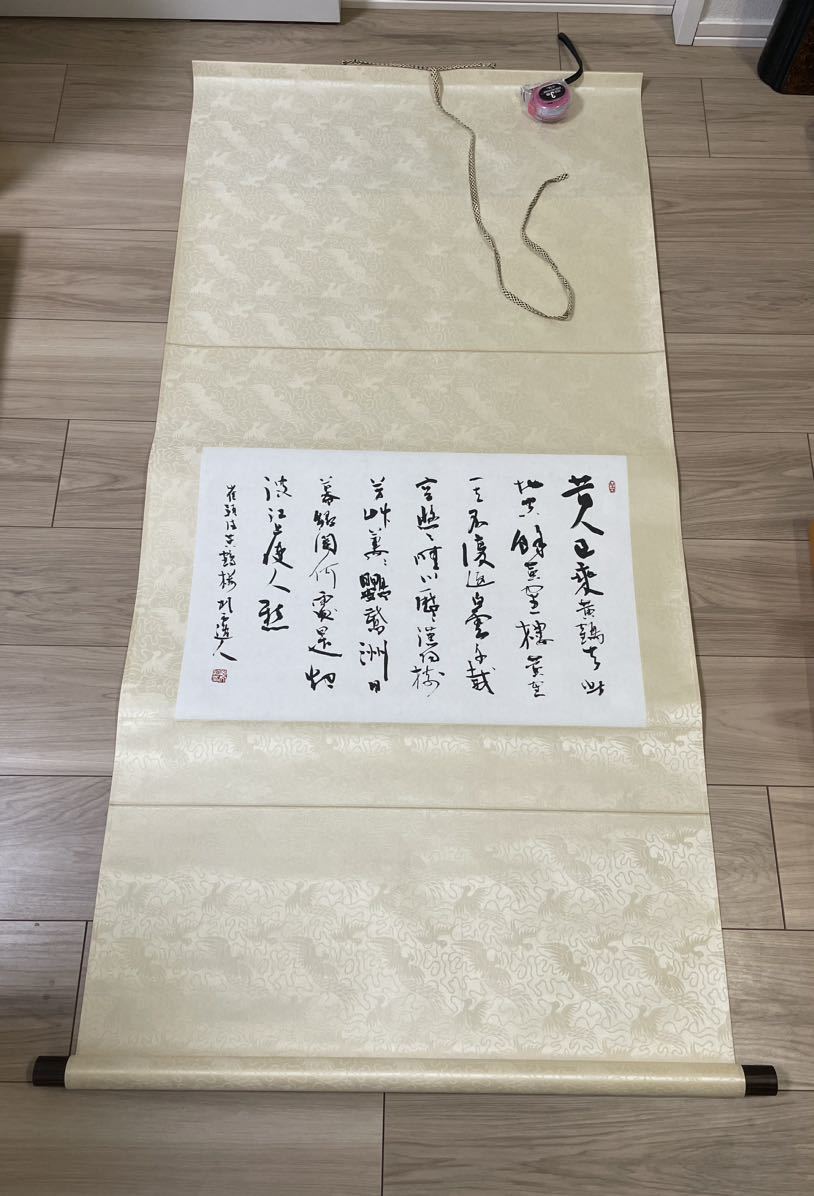 昔人已乘黄鶴去此
地空餘黄鶴樓黄鶴
一去不復返白雲千載
空悠々晴川歷々漢陽樹
芳艸萋々鸚鵡洲日
暮鄉關何處是烟
波江上使人愁
崔顥詩黄鶴樓